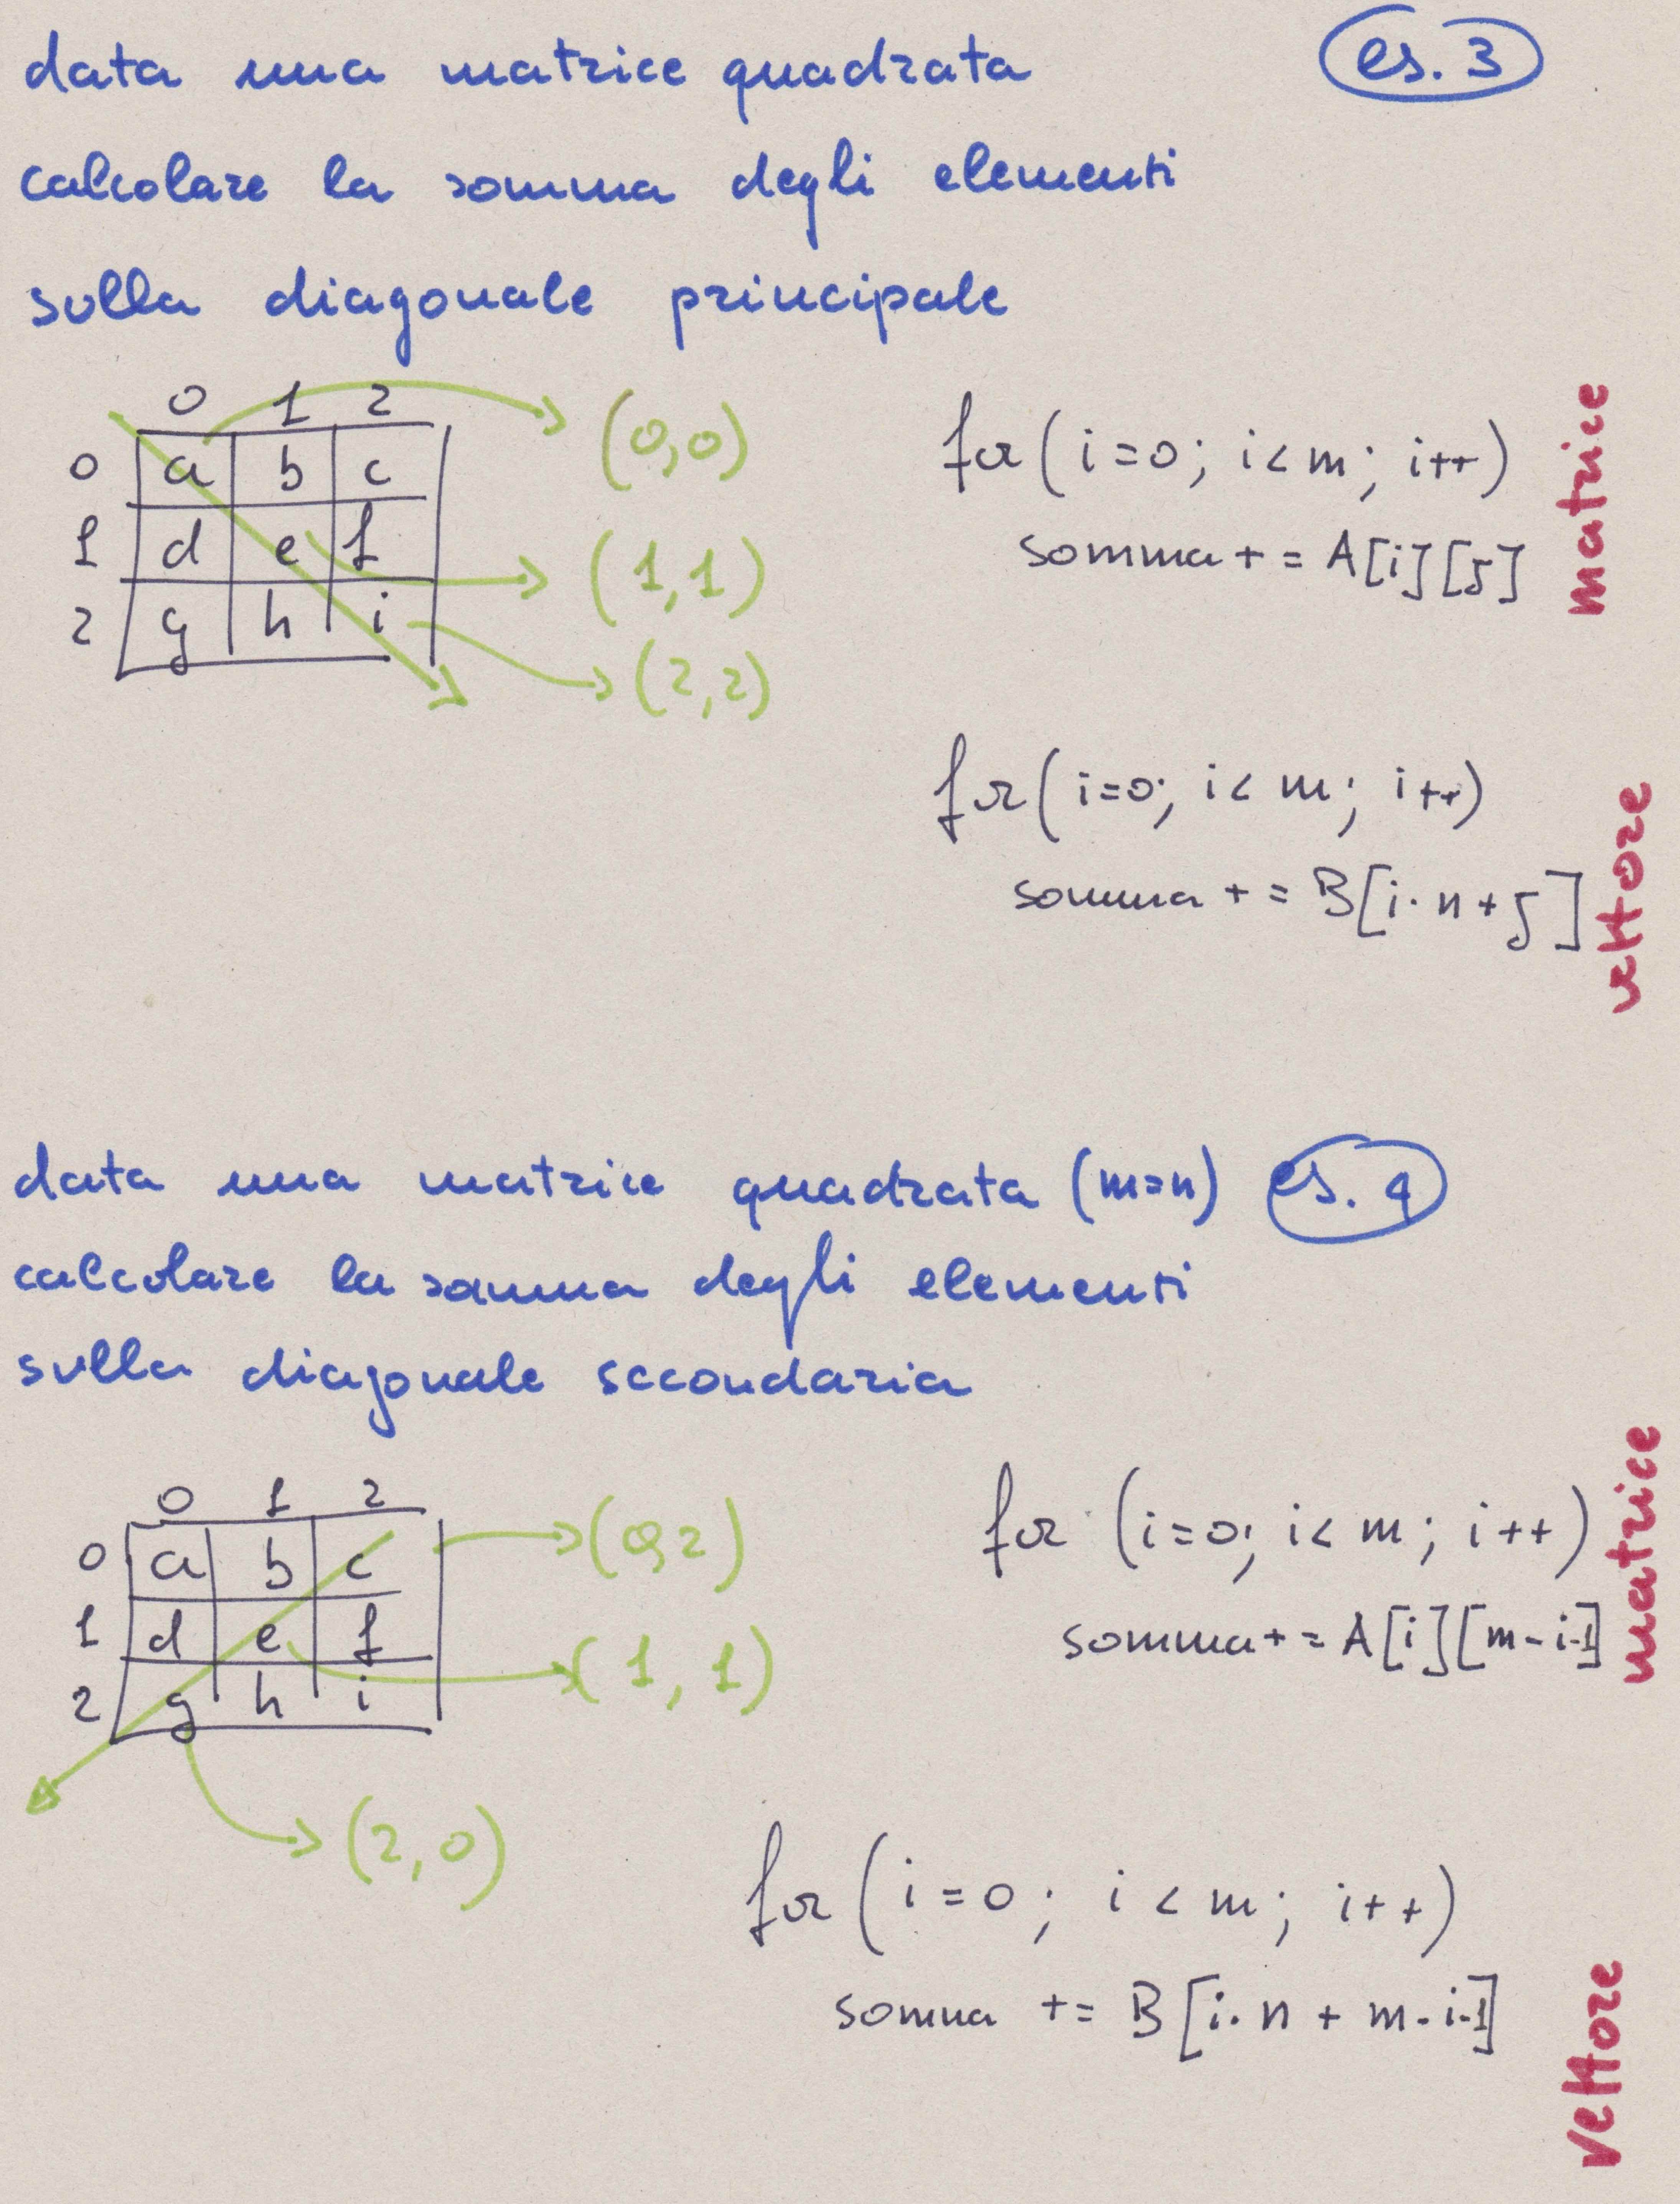 data una matrice quadrata
es. 3
calcolare la somma degli elementi
sulla diagonale principale
0 1 2
0 a b c
1 d e f
2 g h i
(0,0)
(1,1)
(2,2)
for (i=0; i<m; i++)
somma += A[i][j]
matrice
for (i=0; i<m; i++)
somma += B[i·n+j]
vettore
data una matrice quadrata (m=n) es. 4
calcolare la somma degli elementi
sulla diagonale secondaria
0 1 2
0 a b c
1 d e f
2 g h i
(0,2)
(1,1)
(2,0)
for (i=0; i<m; i++)
somma += A[i][m-i-1]
matrice
for (i=0; i<m; i++)
somma += B[i·n+m-i-1]
vettore